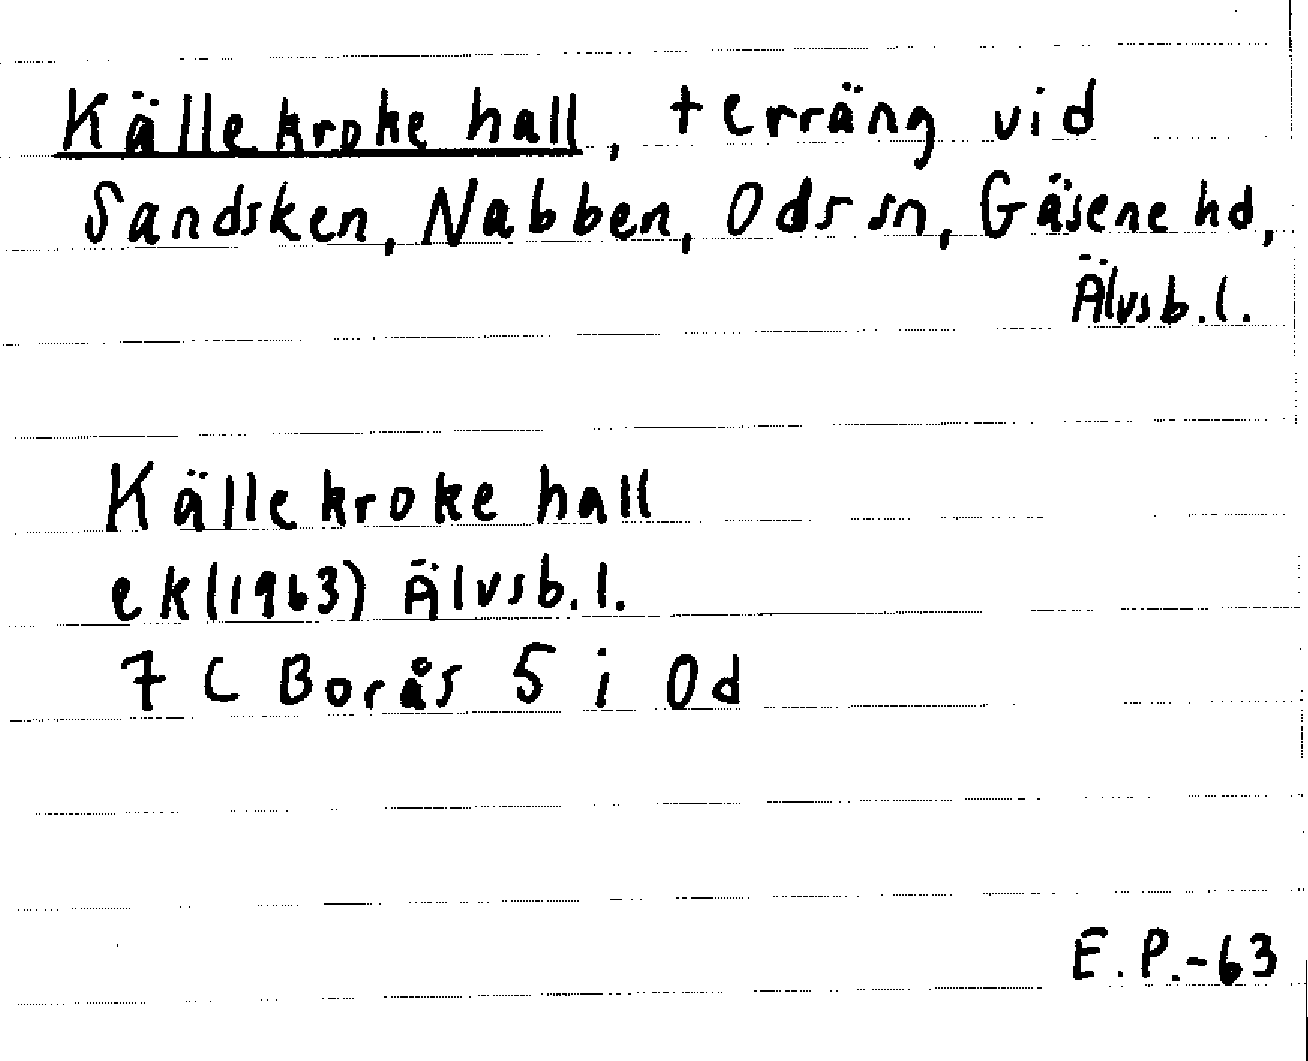 Källekroke hall, terräng vid
Sandsken, Nabben, Ods sn, Gäsene hd,
Älvsb.l.
Källekroke hall
ek(1963) Älvsb.l.
7 C Borås 5 i Od
E.P.-63